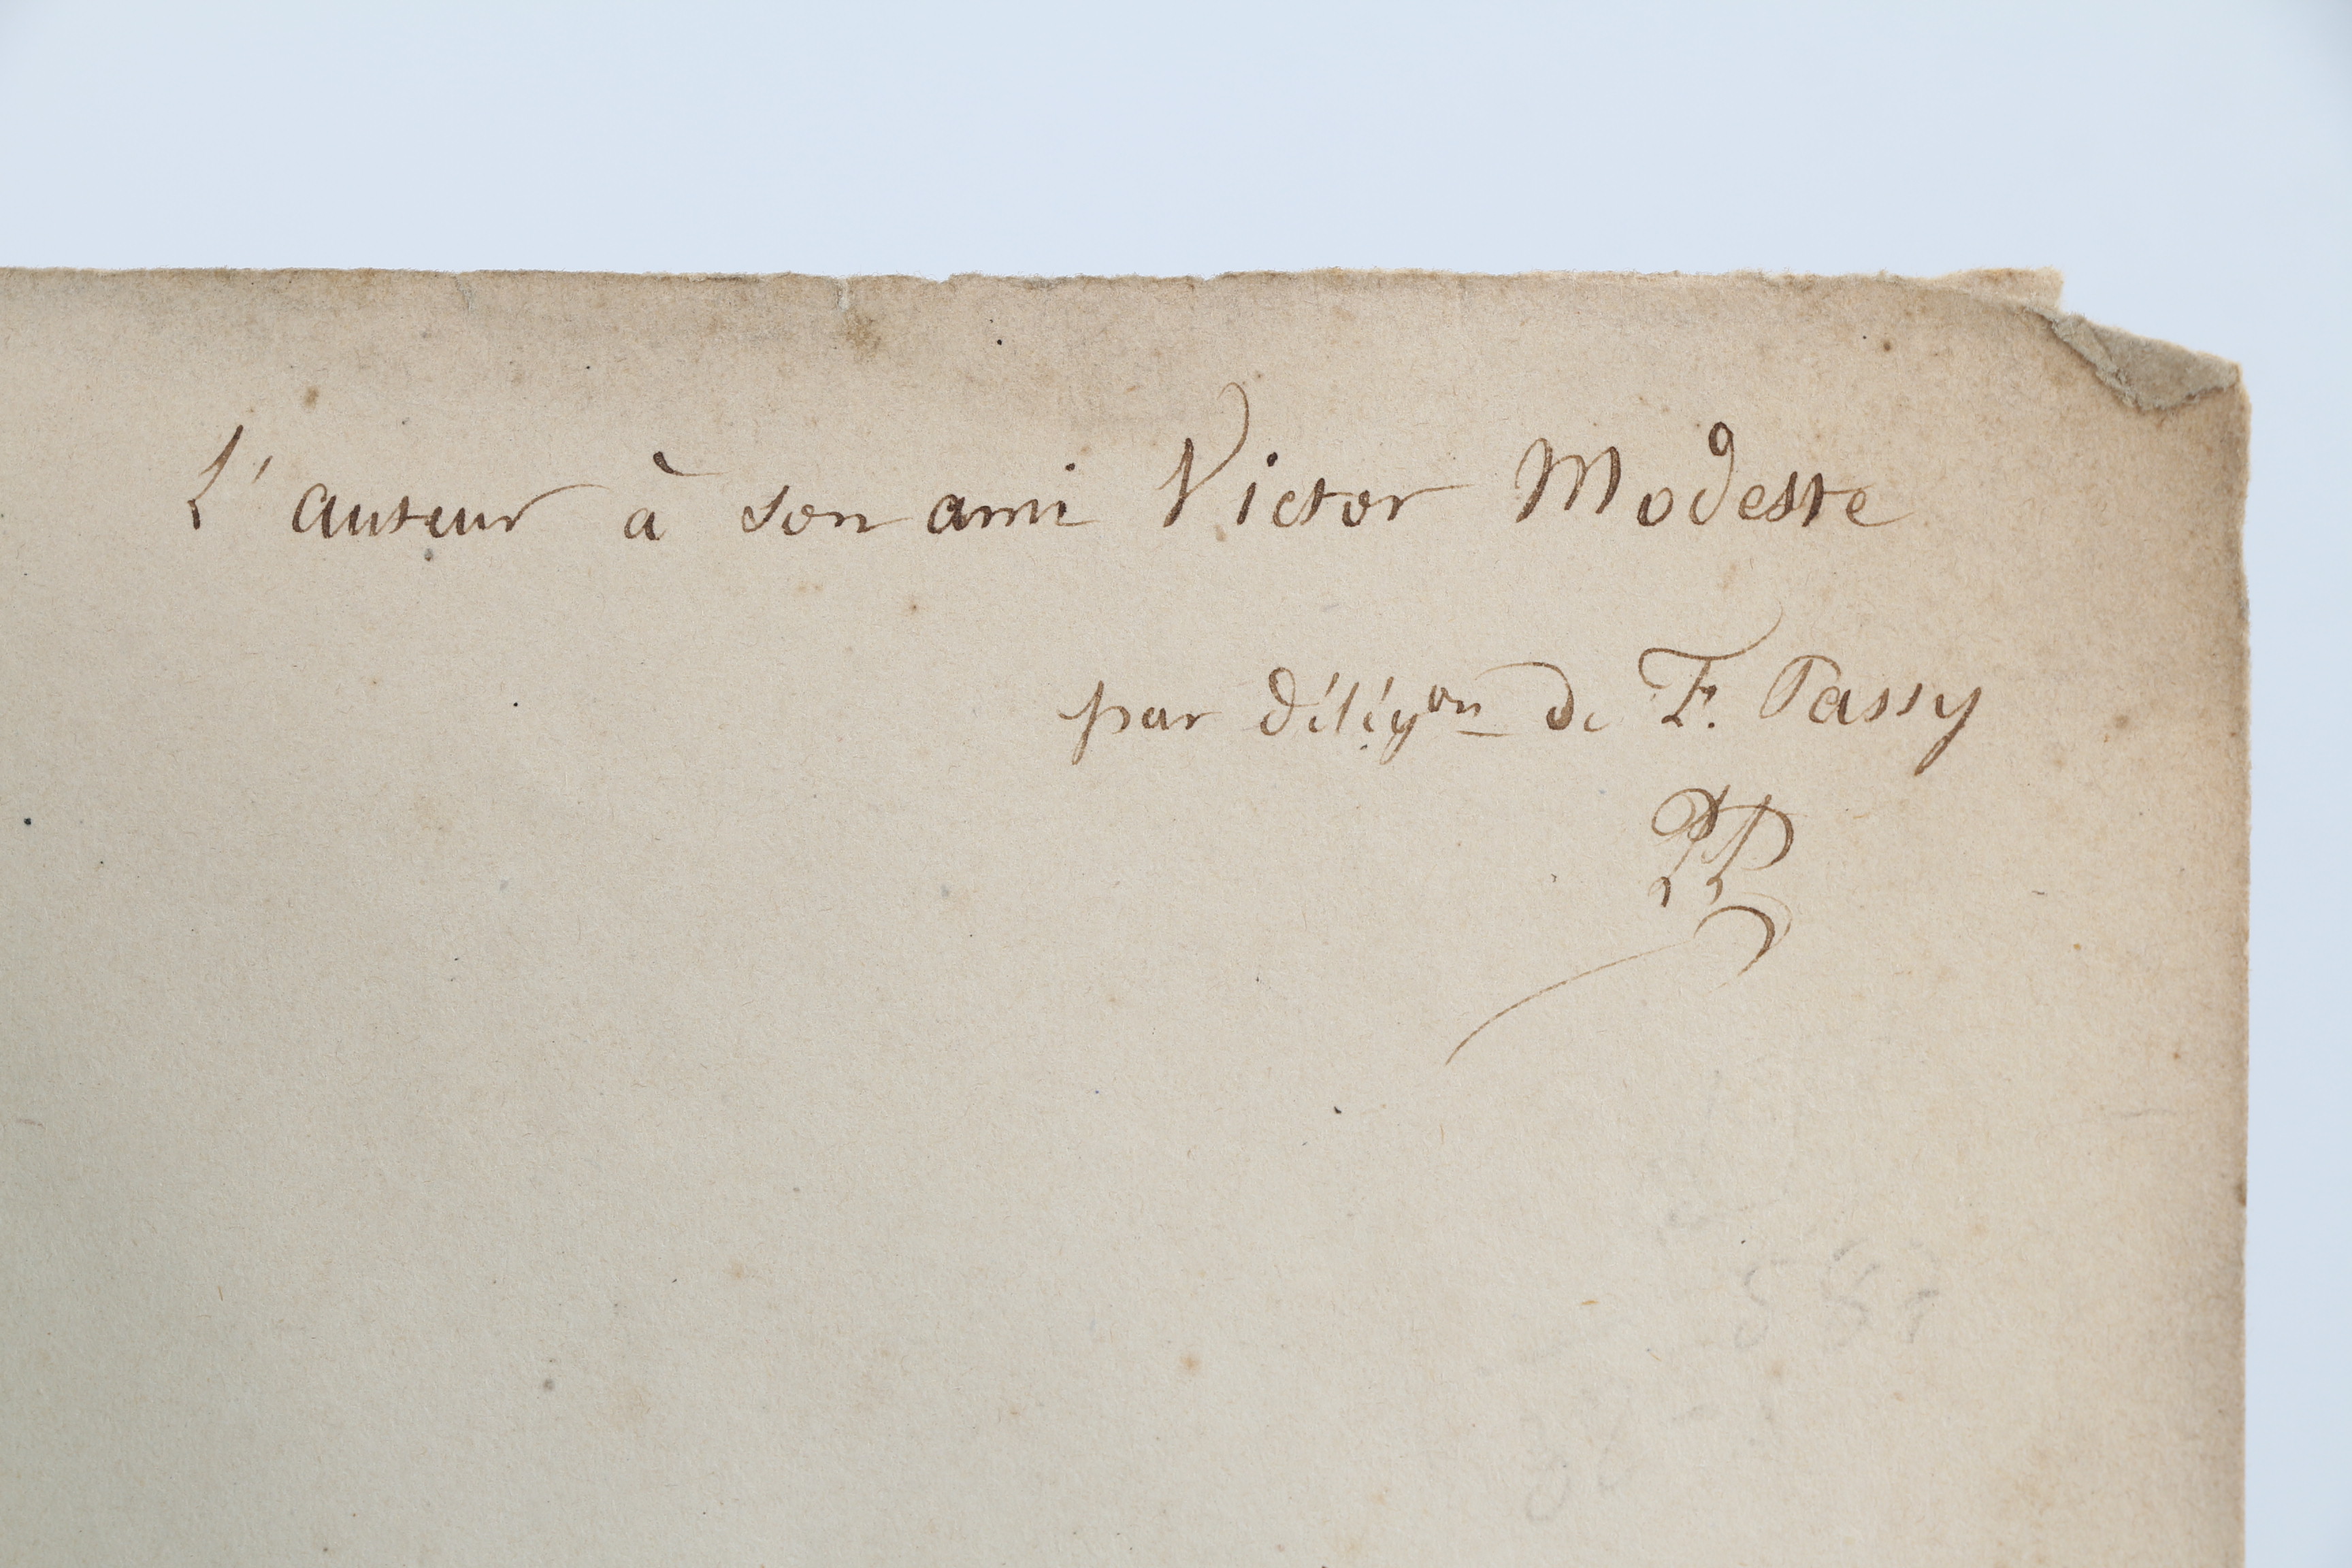 L'auteur à son ami Victor Modeste
par délég^on de F. Passy